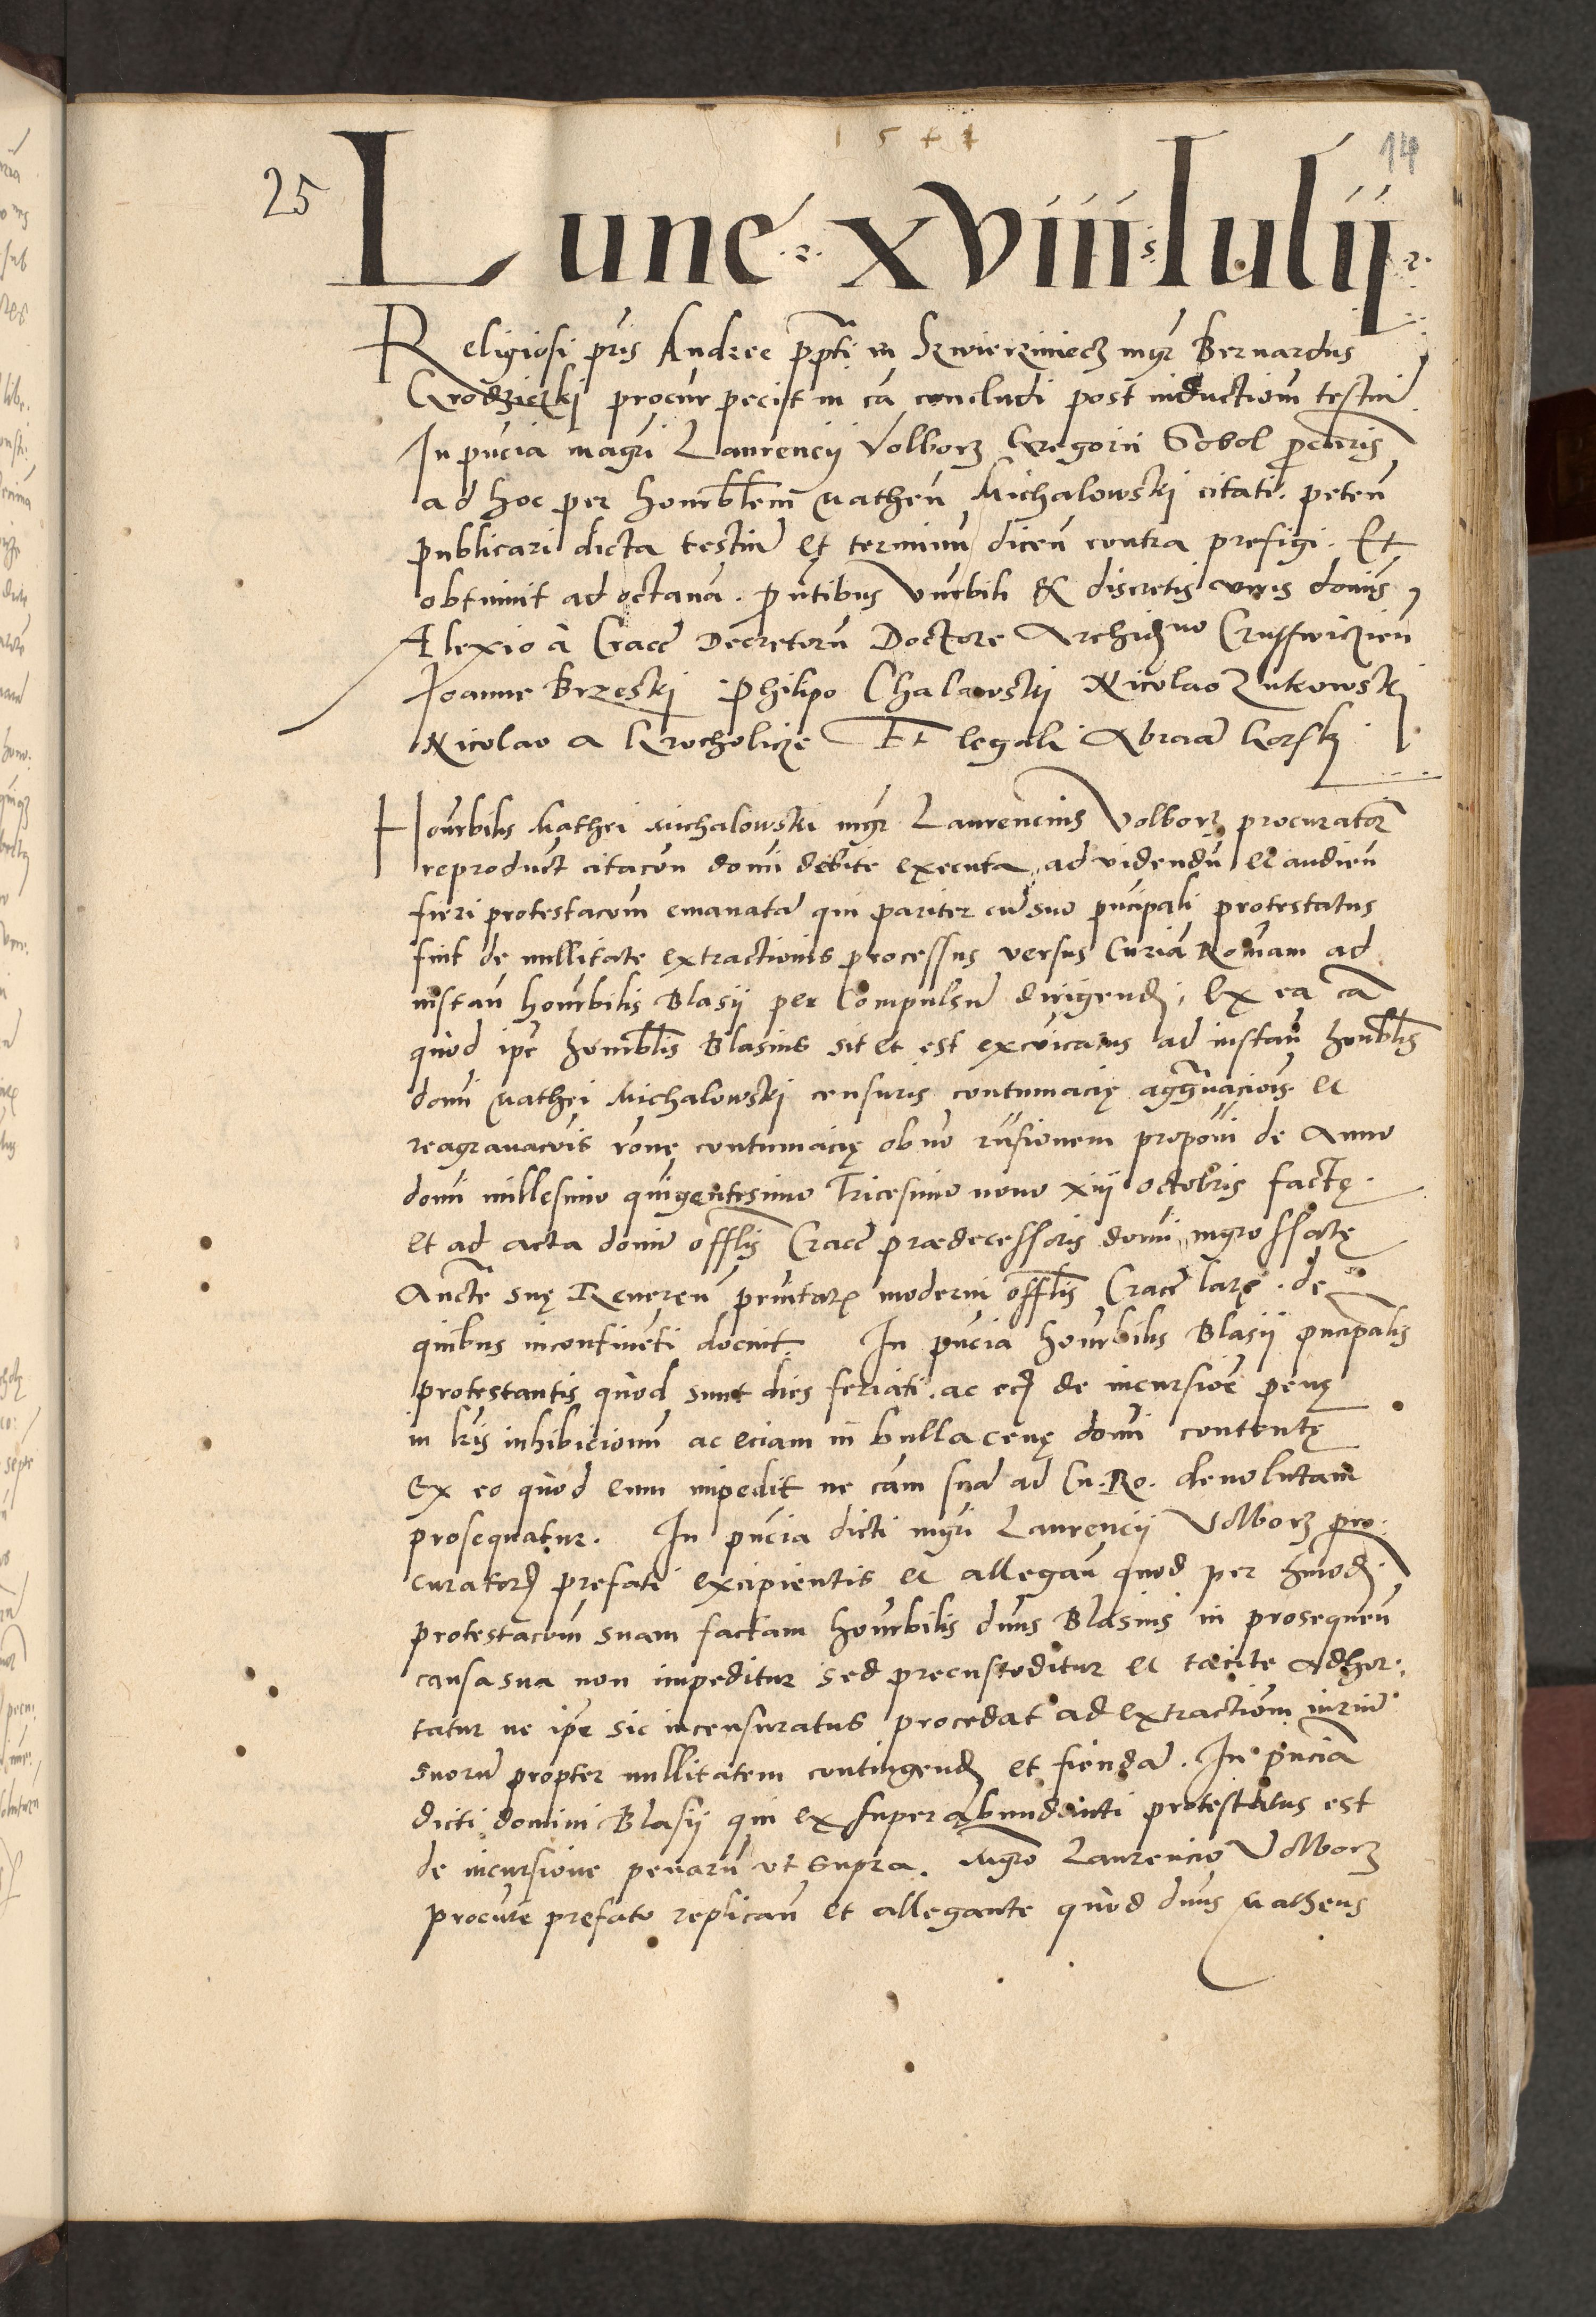 1544
14
25
Lune xviiii Iulij
Religiosi pris Andree ppti in Zwierziniecz mgr Bernardus
Grodziczkj procur peciit in ca concludi post inductiom testiu
In pncia magri Laurencij Volborz Gregorii Gobol procuris
ad hoc per honorblem Matheu Michalowskj citati. peten
publicari dicta testiu et terminu dicen contra prefigi. Et
obtinuit ad octaua. Pntibus Vnrbili & discretis viris dominis
Alexio a Cracc Decretoru Doctore Archidno Crusswicien
Joanne Brzeskj Philipo Chalawskj Nicolao Zukowskj
Nicolao a Krocholicze Et legali Abraa Gorskj
Honrbilis Mathei Michalowski mgr Laurencius Volborz procurator
reproduct citacon domi debite executa ad videndu et audien
fieri protestacom emanata qui pariter cu suo pncipali protestatus
fuit de nullitate extractionis processus versus Curia Romam ad
instan honrbilis Blasij per Compulsu dirigend, Ex ea ca
quod ipe honorblis Blasius sit et est excoicatus ad instan honblis
domi Mathei Michalowskj censuris contumacię aggrauaciois et
reagrauacois rone contumacię ob no rusionem propoui de Anno
domi millesimo quigentesimo Tricesimo nono xiij octobris factę
et ad acta domi offlis Cracc prædecessoris domi ingrossatę
Aucte suę Reueren pmutatę moderni offlis Cracc latę. de
quibus incontineti docuit. In pncia honrbilis Blasij pncipalis
protestantis quod sunt dies feriati. ac ecj de incursioe penę
in lris inhibicionu ac eciam in bulla cenę domi contentę
ex eo quod eum impedit ne cam sua ad Cu. Ro. deuolutam
prosequatur. In pncia dicti mgri Laurencij Volborz pro-
curatorj prefati excipientis et allegan quod per hmodj
protestacom suam factam honrbilis dnus Blasius in prosequen
causa sua non impeditur sed precustoditur et tacite adhor-
tatur ne ipe sic incensuratus procedat ad extractiom iuriu
suoru propter nullitatem contingend et fienda. In pncia
dicti domini Blasij qui ex superabundanti protestatus est
de incursione penaru vt supra. Mgro Laurencio Volborz
procure prefato replican et allegante quod dnus Matheus